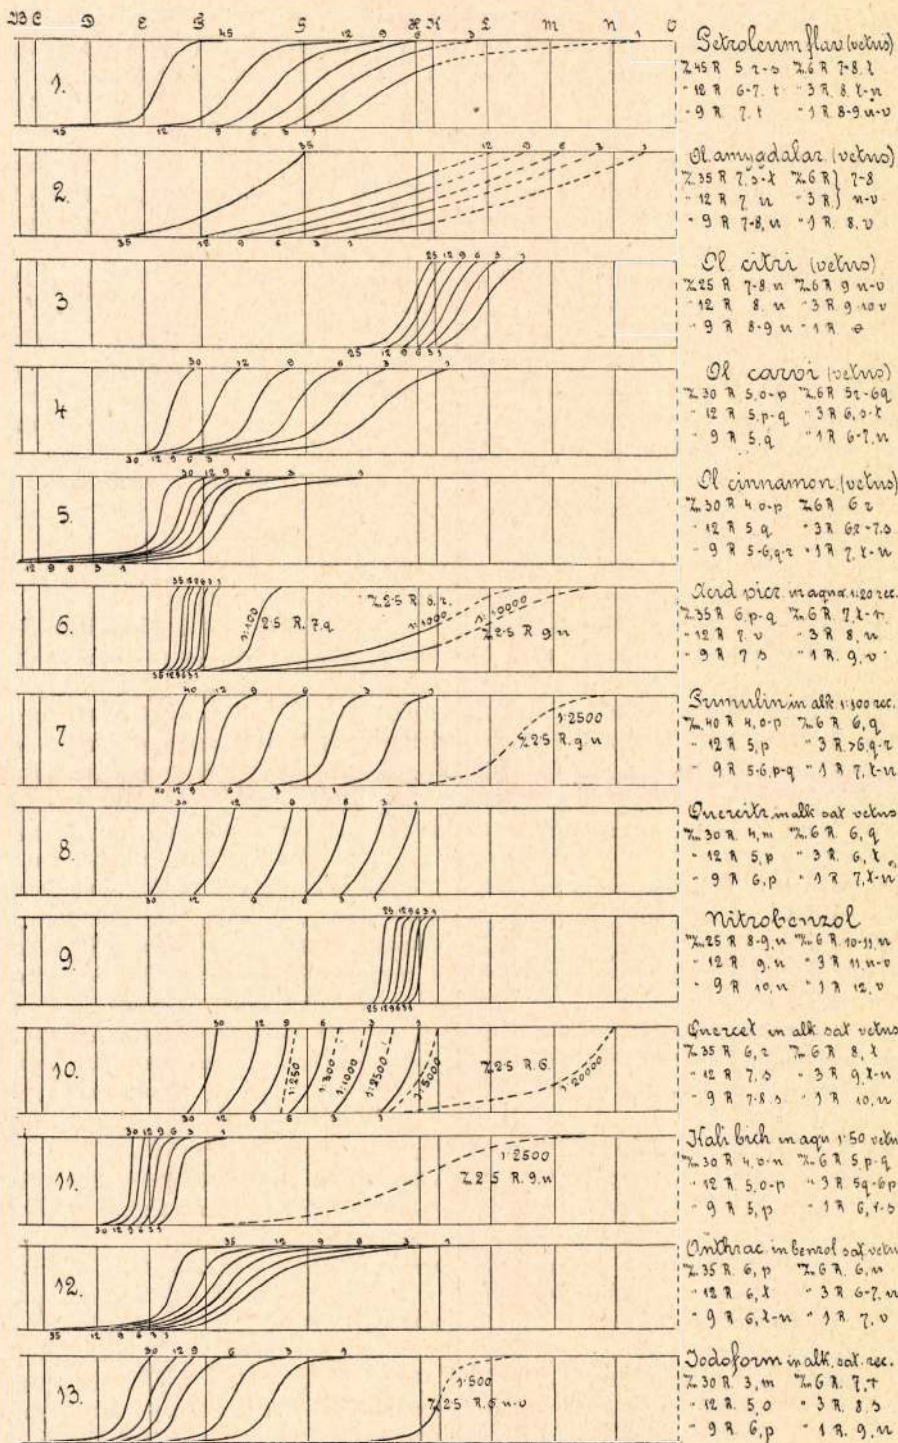 B C D E F G H K L M N O
1.
45 12 9 6 3 1
45 12 9 6 3 1
Petroleum flav (vetus)
45 R 5 r-s 6 R 7-8. t
" 12 R 6-7. t " 3 R. 8. t-u
" 9 R. 7. t " 1 R 8-9 u-v
2.
35 12 9 6 3 1
35 12 9 6 3 1
Ol. amygdalar. (vetus)
35 R 7, s-t 6 R } 7-8
" 12 R 7 u " 3 R. } u-v
" 9 R 7-8, u " 1 R. 8. v
3
25 12 9 6 3 1
25 12 9 6 3 1
Ol. citri (vetus)
25 R 7-8. u 6 R 9 u-v
" 12 R 8. u " 3 R 9-10 v
" 9 R 8-9 u " 1 R
4
30 12 9 6 3 1
30 12 9 6 3 1
Ol carvi (vetus)
30 R 5, o-p 6 R 5r-6q
" 12 R 5, p-q " 3 R 6, s-t
" 9 R 5, q " 1 R 6-7, u
5.
30 12 9 6 3 1
12 9 6 3 1
Ol cinnamon. (vetus)
30 R 4 o-p 6 R 6 r
" 12 R 5 q " 3 R 6r-7.s
" 9 R 5-6, q-r " 1 R 7, t-u
6.
35 12 9 6 3 1
1:100 2.5 R. 7. q
2.5 R 8. r. 1:1000
1:10000
2.5 R 9 u
35 12 9 6 3 1
Acid picr. in aqua. 1:20 rec.
35 R 6, p-q 6 R 7, t-
" 12 R 7. " 3 R 8, u
" 9 R 7 s " 1 R. 9, v
7
40 12 9 6 3 1
1:2500
2.5 R. 9. u
40 12 9 6 3 1
Primulin in alk. 1:100 rec.
40 R 4, o-p 6 R 6, q
" 12 R 5, p " 3 R >6, q-r
" 9 R 5-6, p-q " 1 R 7, t-u
8.
30 12 9 6 3 1
30 12 9 6 3 1
Quercitr. in alk sat vetus
30 R 4, m 6 R. 6, q
" 12 R 5, p " 3 R. 6, t
" 9 R 6, p " 1 R 7, t-u
9.
25 12 9 6 3 1
25 12 9 6 3 1
Nitrobenzol
25 R 8-9, u 6 R. 10-11, u
" 12 R 9. u " 3 R 11, u-v
" 9 R 10, u " 1 R 12, v
10.
30 12 9 6 3 1
1:250 1:500 1:1000 1:2500 1:5000 2.5 R. 6. 1:20000
30 12 9 6 3 1
Quercet in alk. sat vetus
35 R 6, r 6 R 8, t
" 12 R 7, s " 3 R 9, t-u
" 9 R 7-8. s " 1 R 10, u
11.
30 12 9 6 3 1
1:2500
2.5 R. 9. u
30 12 9 6 3 1
Kali bich in aqu 1:50 vetu
30 R 4, 6 R 5, p-q
" 12 R. 5, o-p " 3 R 5q-6p
" 9 R 5, p " 1 R 6, r-s
12.
35 12 9 6 3 1
35 12 9 6 3 1
Anthrac. in benzol sat. vetu
35 R. 6, p 6 R. 6, u
" 12 R 6, t " 3 R 6-7, u
" 9 R 6, t-u " 1 R. 7, v
13.
30 12 9 6 3 1
1:500
2.5 R. 5 u-v
Jodoform in alk. sat. rec.
30 R. 3, m 6 R. 7, r
" 12 R. 5, o " 3 R. 8, s
" 9 R 6, p " 1 R. 9, u